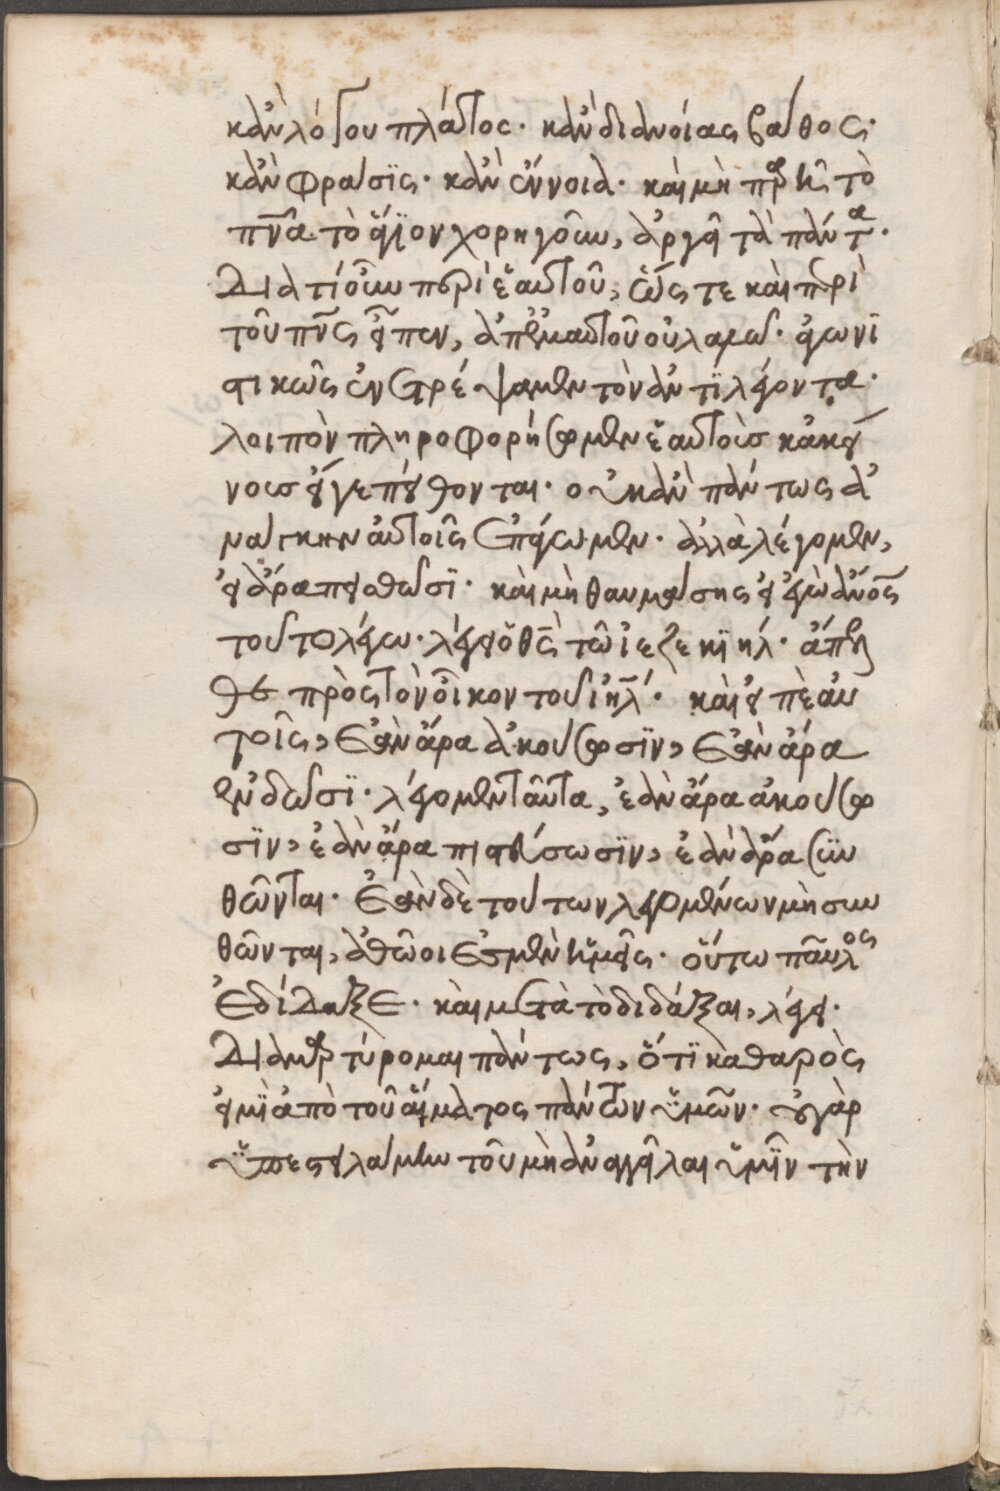 κἂν λόγου πλάτος· κἂν διανοίας βάθος·
κἂν φράσϊς· κἂν ἔννοια· καὶ μὴ παρῆ τὸ
πν̅α τὸ ἅγϊον χορηγοῦν, ἀργεῖ τὰ πάντα·
Διατί οὖν περὶ ἑαυτοῦ, ὥς τε καὶ περὶ
τοῦ πν̅ς εἶπεν, ἀπ' ἐμαυτοῦ οὐ λαλῶ· ἀγωνϊ
στικῶς ἐνστρέψαμεν τὸν ἀντϊλέγοντα·
λοιπὸν πληροφορήσωμεν ἑαυτοὺσ κἀκεί
νουσ εἴγε πείθονται· οὐκ ἂν πάντως ἀ
νάγκην αὐτοῖς ἐπάγωμεν· ἀλλὰ λέγομεν,
εἰ ἄρα πεισθῶσϊ· καὶ μὴ θαυμάσης εἰ ἐγὼ ἀν̅ος
τοῦτο λέγω· λέγει ὁ θς̅ τῶ ἰεζεκϊήλ· ἄπελ
θε πρὸς τὸν οἶκον τοῦ ιη̅λ· καὶ εἰπὲ αὐ
τοῖς, ἐὰν ἄρα ἀκούσωσϊν, ἐὰν ἄρα
ἐνδῶσϊ· λέγομεν ταῦτα, ἐὰν ἄρα ἀκούσω
σϊν, ἐὰν ἄρα πιστεύσωσϊν, ἐὰν ἄρα συν
θῶνται· Ἐὰν δὲ τούτων λεγομένων μὴ συν
θῶνται, ἀθῶοι ἐσμὲν ἡμεῖς· οὕτω παῦλος
ἐδίδαξε· καὶ μετὰ τὸ διδάξαι, λέγει·
Διαμαρτύρομαι πάντως, ὅτϊ καθαρὸς
εἰμϊ ἀπὸ τοῦ αἵματος πάντων ὑμῶν· οὐ γὰρ
ὑπεστειλάμην τοῦ μὴ ἀναγγεῖλαι ὑμῖν τὴν